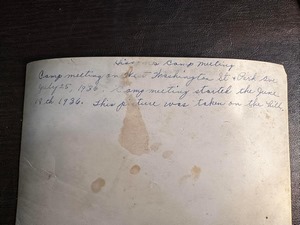 Camp Meeting
Camp meeting on Washington St & Park Ave
July 25, 1936. Camp meeting started the June
18th 1936. This picture was taken on the